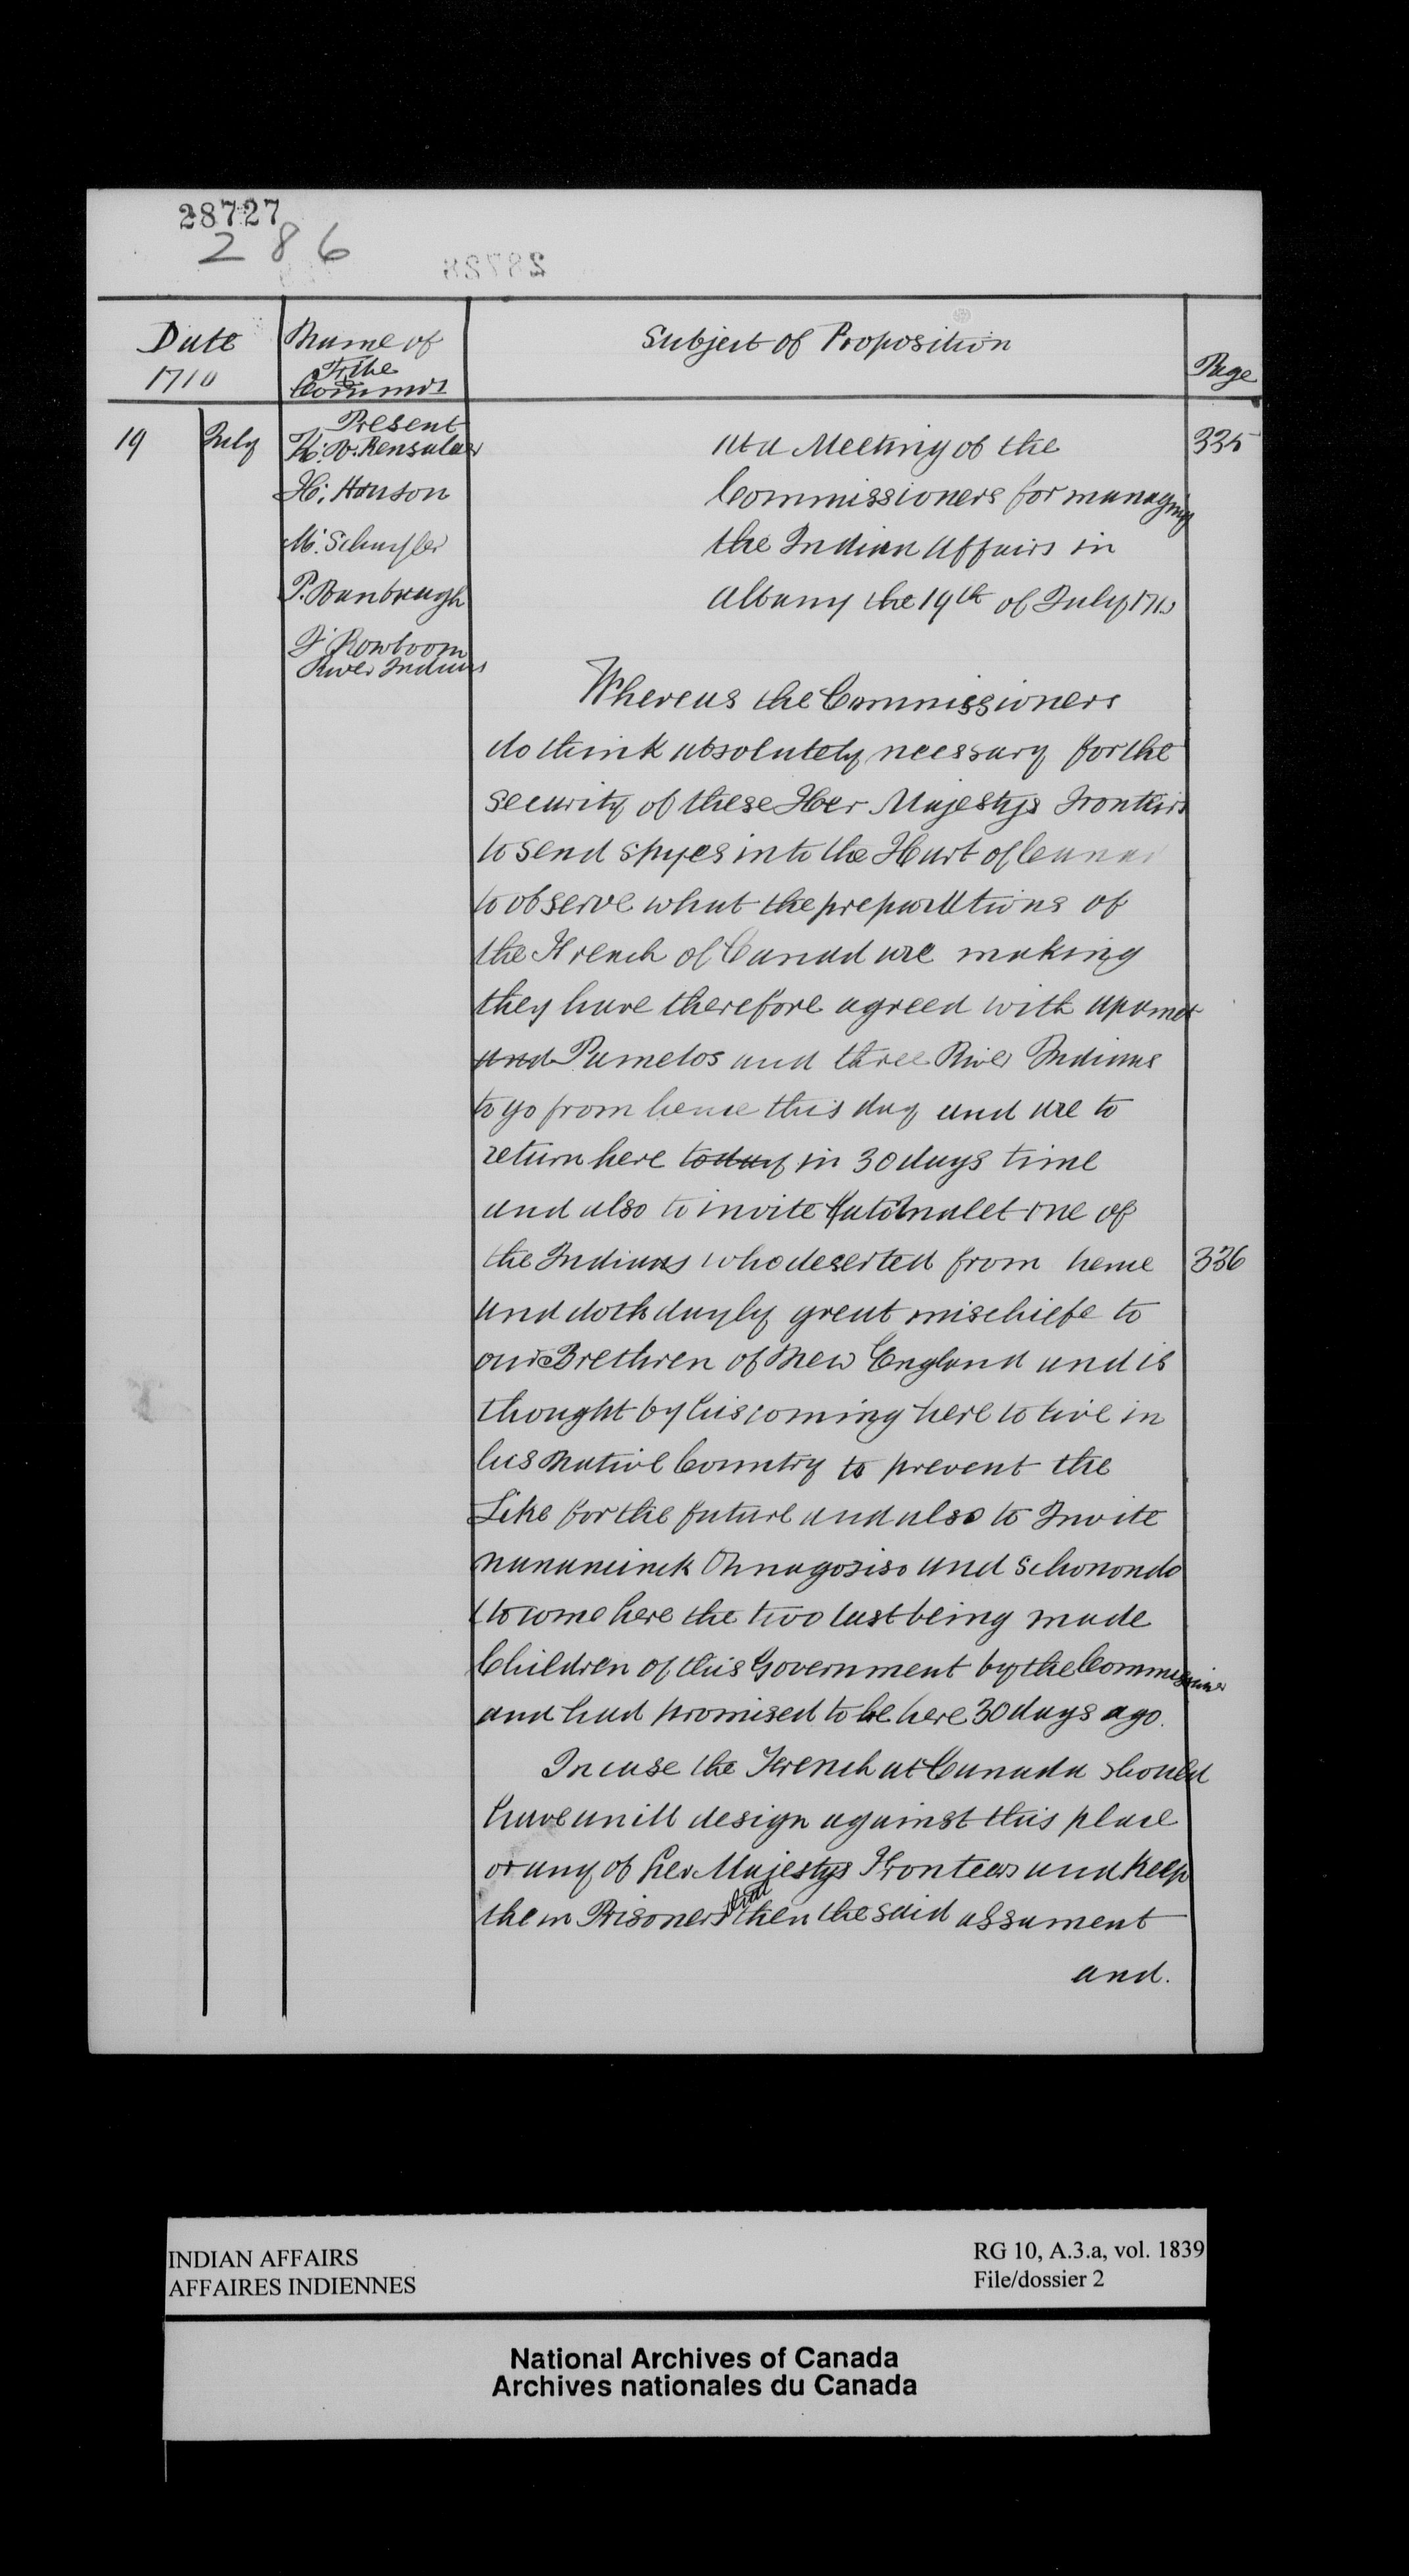 28727
286
28728
Date
1710
Name of
Tribe
&
Commrs
Subject of Proposition
Page
19 July
Present
K: V: Rensalaer
H: Hanson
M: Schuyler
P. Vanbrugh
J: Rowboom
River Indians
At a Meeting of the
335
Commissioners for managing
the Indian Affairs in
Albany the 19th of July 1710
Whereas the Commissioners
do think absolutely necssary for the
security of these Her Majestys Frontiers
to send spyes into the Hart of Canad
to observe what the preparations of
the French of Canad are making
they have therefore agreed with apamet
and Pametos and three River Indians
to go from hence this day and are to
return here today in 30 days time
and also to invite one of
the Indians who deserted from hence
336
and doth dayly great mischiefe to
our Brethren of New England and is
thought by his coming here to live in
his Native Country to prevent the
Like for the future and also to Invite
nanameinck Onnagosiso and Schonondo
to come here the two last being made
Children of this Government by the Commissioner
and had promised to be here 30 days ago.
In case the French at Canada should
have an ill design against this place
or any of her Majestys Fronteers and keep
them Prisoners that then the said assament
and.
INDIAN AFFAIRS
AFFAIRES INDIENNES
RG 10, A.3.a, vol. 1839
File/dossier 2
National Archives of Canada
Archives nationales du Canada